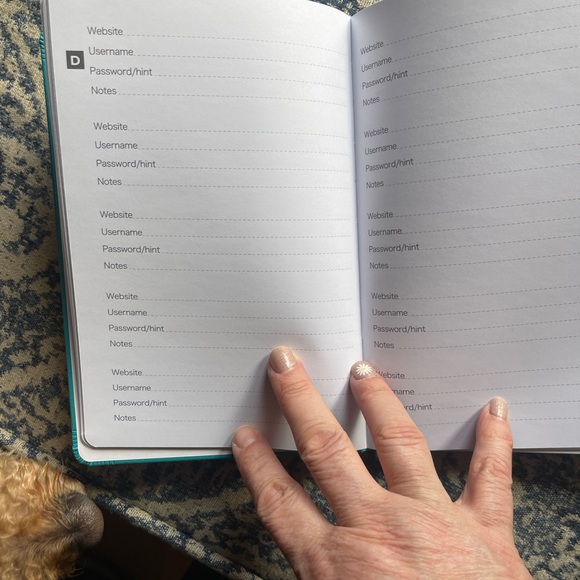 Website
D
Username
Password/hint
Notes
Website
Username
Password/hint
Notes
Website
Username
Password/hint
Notes
Website
Username
Password/hint
Notes
Website
Username
Password/hint
Notes
Website
Username
Password/hint
Notes
Website
Username
Password/hint
Notes
Website
Username
Password/hint
Notes
Website
Username
Password/hint
Notes